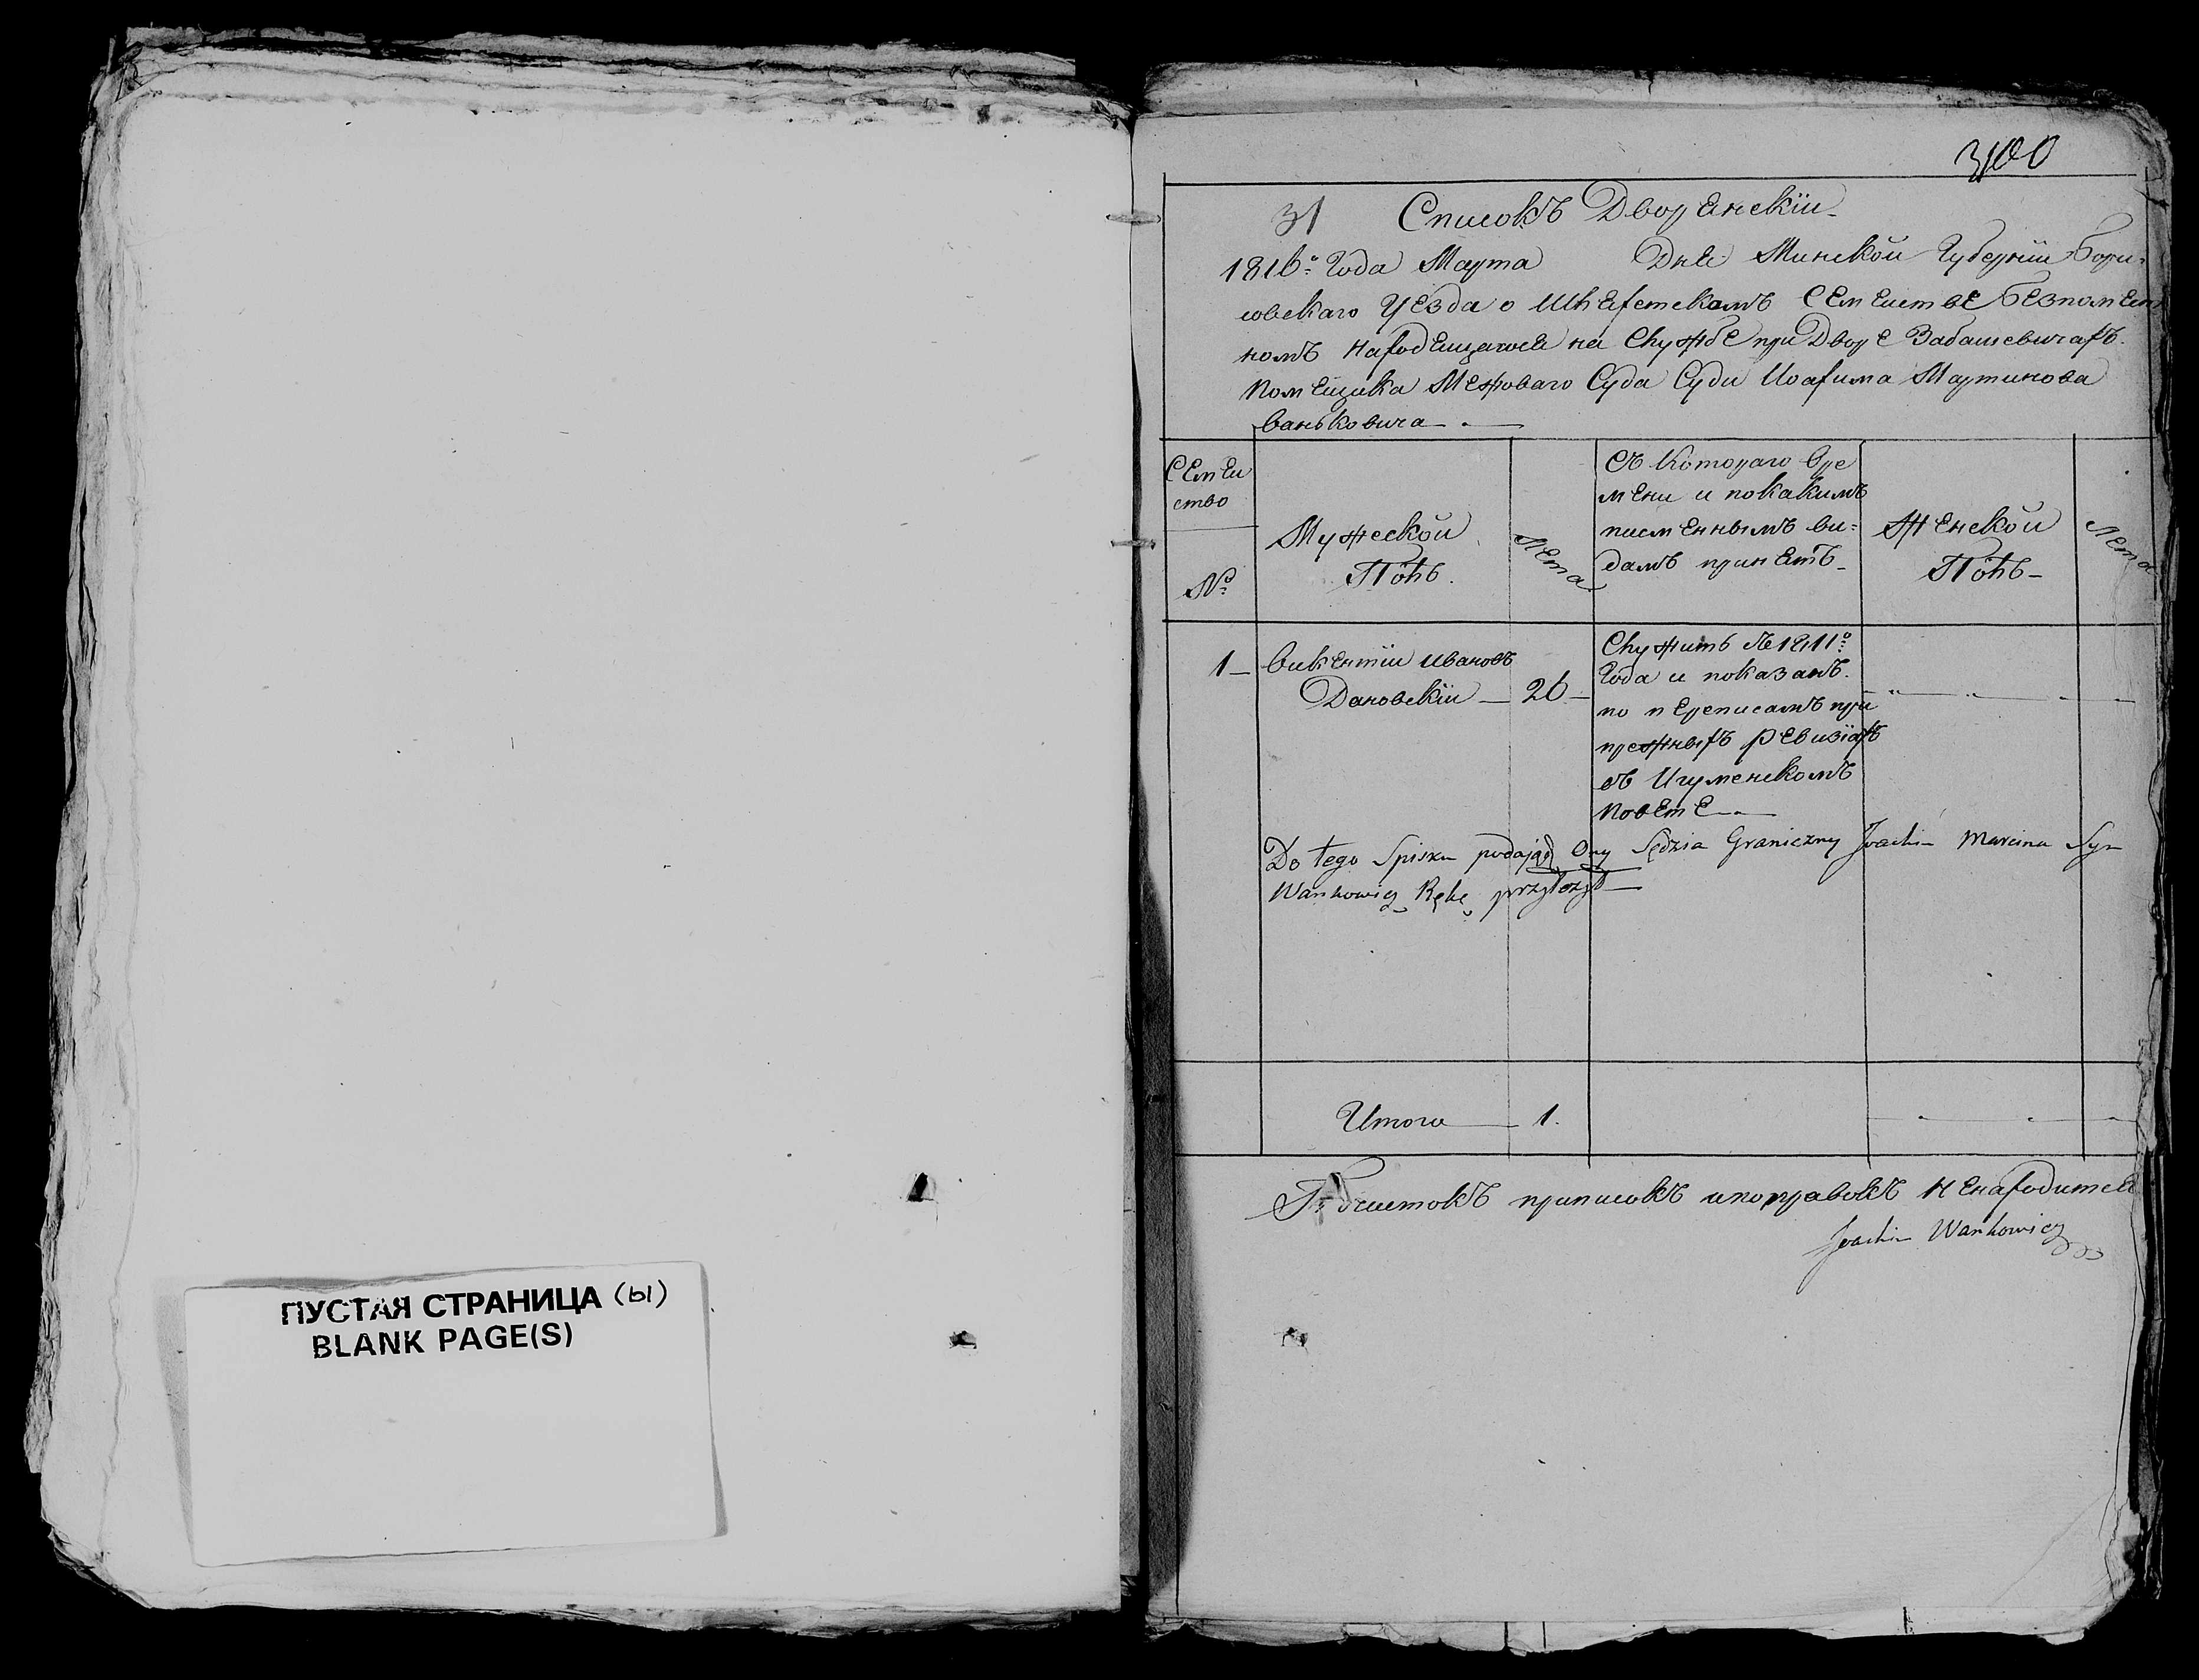 3100
31 Списокъ Дворенскіи
1816го Года Марта Дне Минской Губерніи Бори=
совскаго Уезда о Шлехетскомъ Семействе безпомест
номъ находещагосе на Службе при Дворе Забашевичахъ
Помещика Межоваго Суда Суди Иоахима Мартинова
Ваньковича
Семеи
ство
№
Мужеской
Полъ
Лета
Съ Котораго вре
мени и покакимъ
писменнымъ ви=
дамъ принетъ
Женской
Полъ
Лета
1 Викентіи Ивановъ
Дановскіи 26
Служитъ 1811го
Года и показанъ
по переписамъ при
прежныхъ ревизіахъ
въ Игуменскомъ
Повете
Do tego Spisku podając Ony Sędzia Graniczny Joachim Marcina Syn
Wankowicz Rękę przyłożył
Итого 1
приписокъ и поправокъ Ненаходитсе
Joachim Wankowicz
ПУСТАЯ СТРАНИЦА (ы)
BLANK PAGE(S)